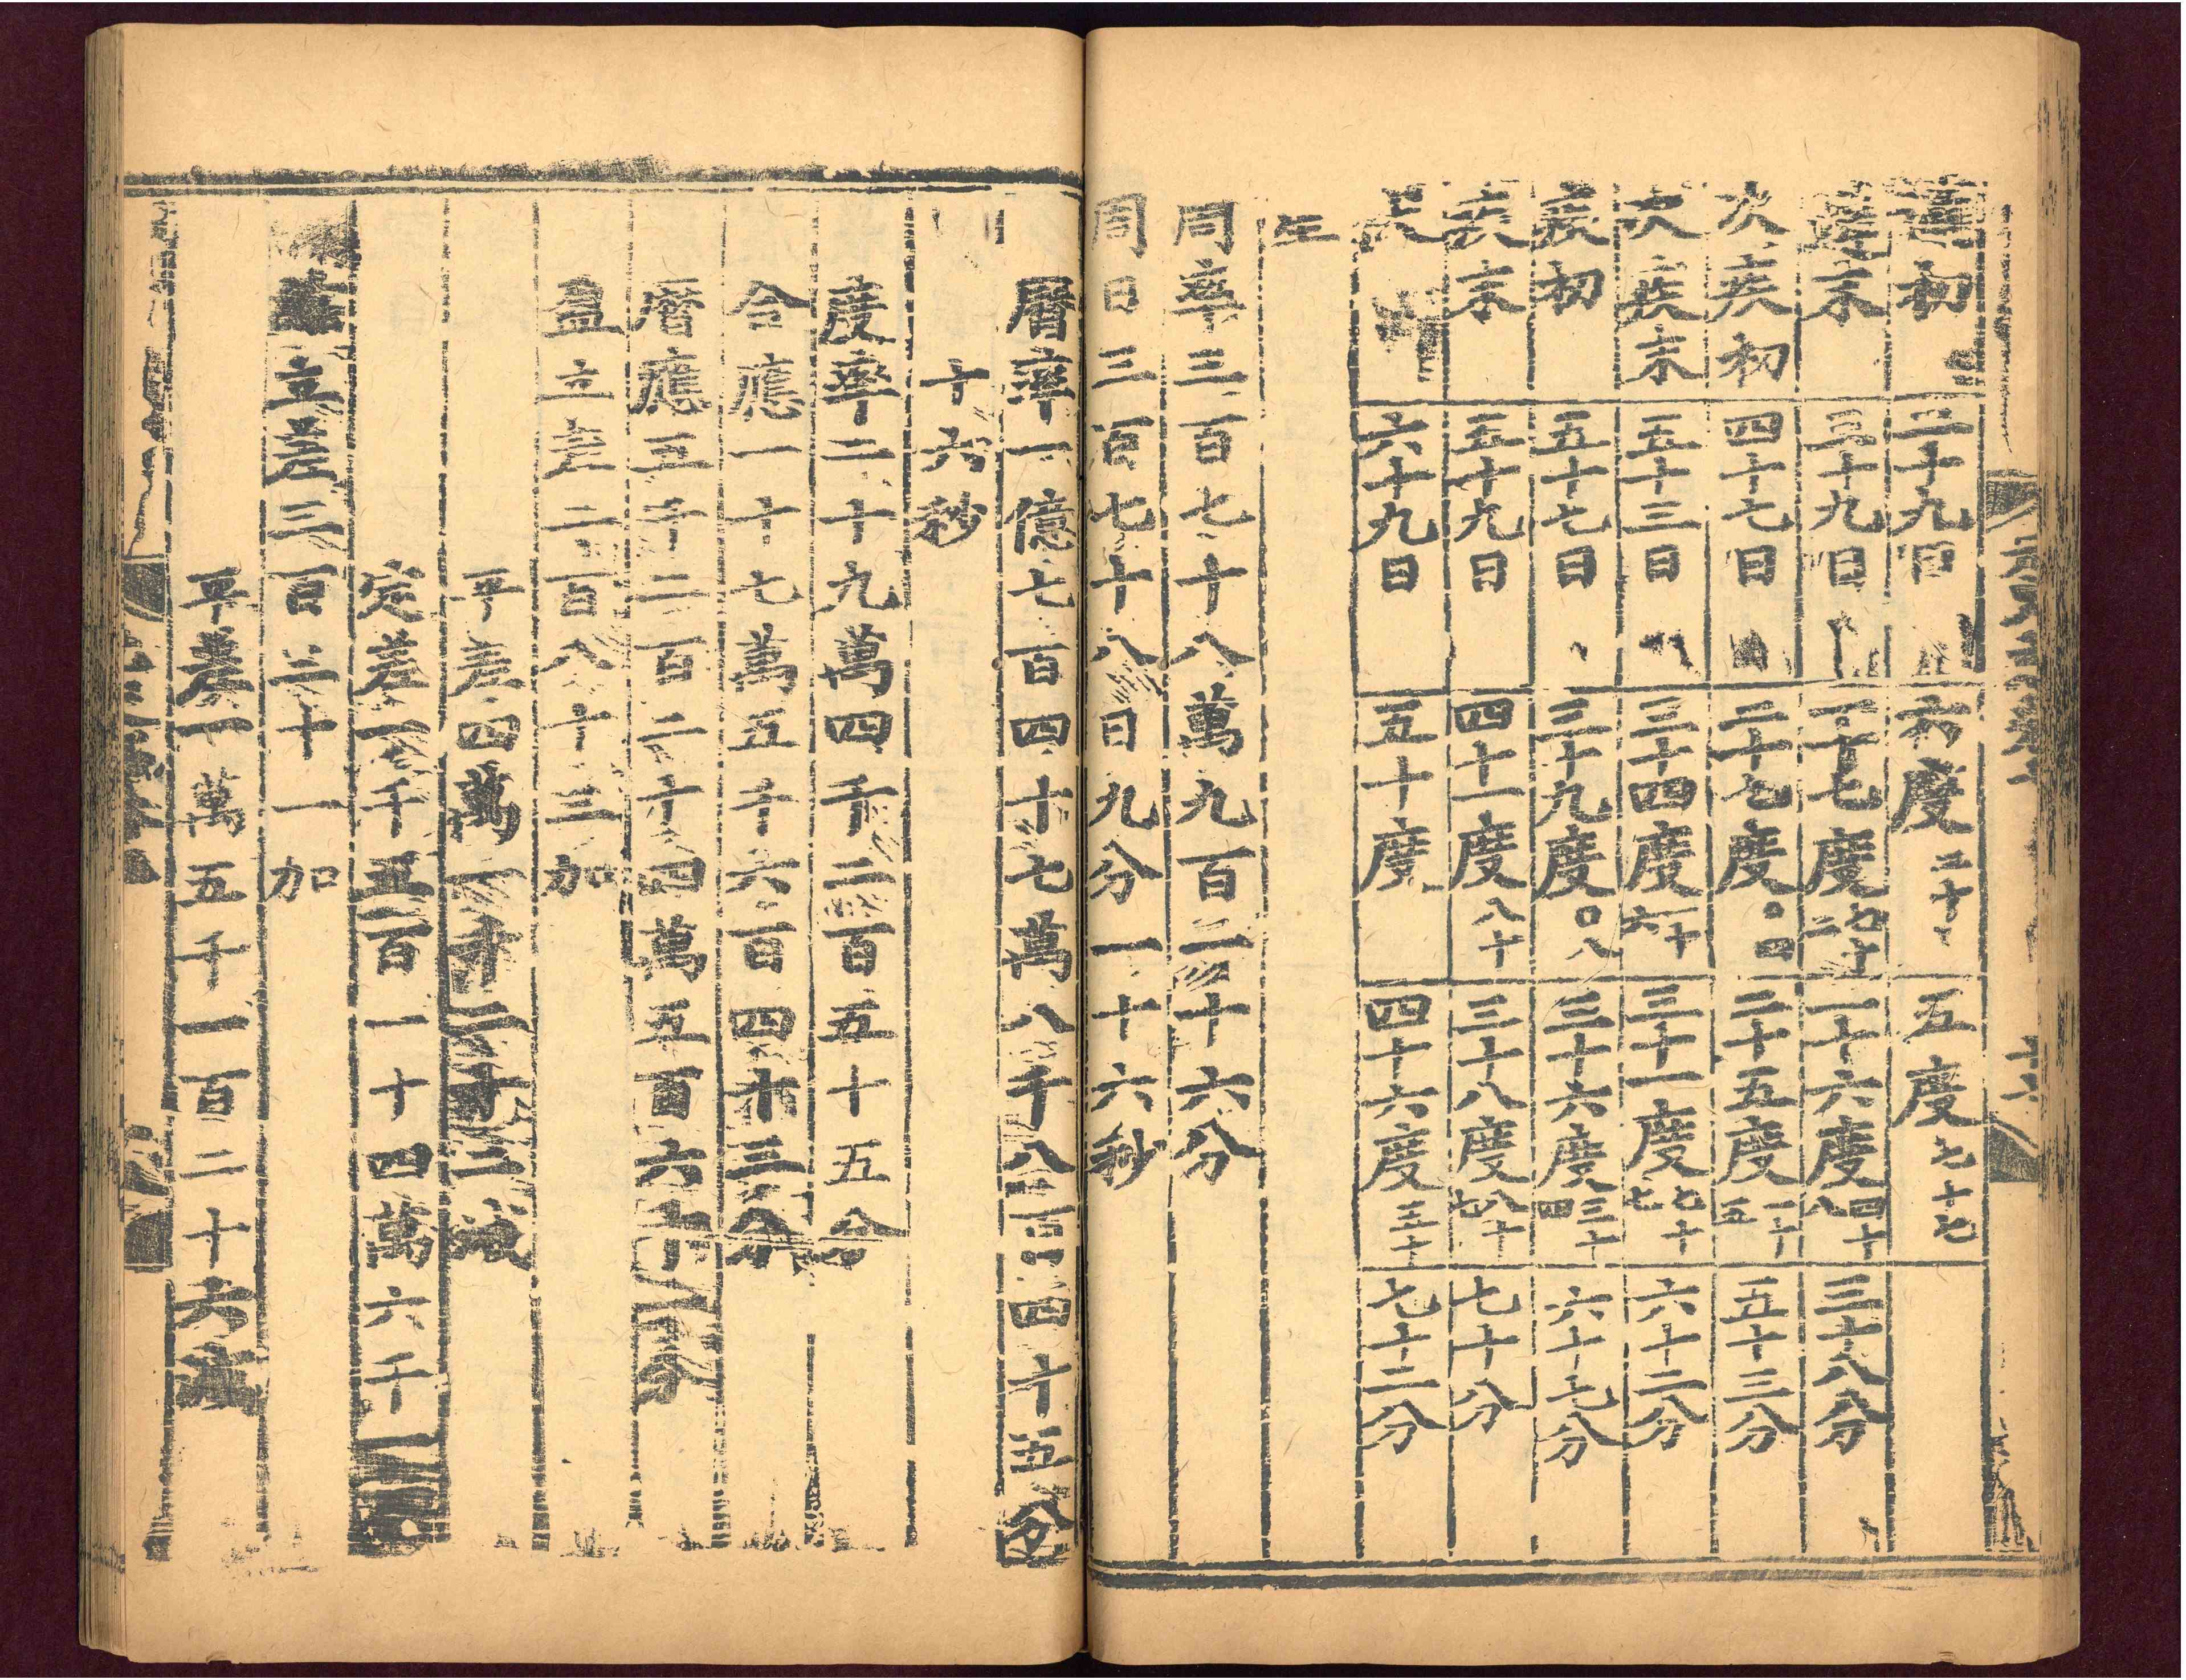 初 二十九日 六度二十 五度七十七
遲末 三十九日 一十七度七十二 一十六度四十八 三十八分
次疾初 四十七日 二十七度〇四 二十五度一十五 五十三分
次疾末 五十三日 三十四度一十六 三十一度七十七 六十二分
疾初 五十七日 三十九度〇八 三十六度三十四 六十七分
疾末 五十九日 四十一度八十 三十八度八十七 七十分
六十九日 五十度 四十六度三十 七十二分
周率三百七十八萬九百一十六分
周日三百七十八日九分一十六秒
曆率一億七百四十七萬八千八百四十五分
十六秒
度率二十九萬四千二百五十五分
合應一十七萬五千六百四十三分
曆應五千二百二十四萬五百六十一分
盈立差二百八十三加
平差四萬一千二十二減
定差一千五百一十四萬六千
立差三百三十一加
平差一萬五千一百二十六減